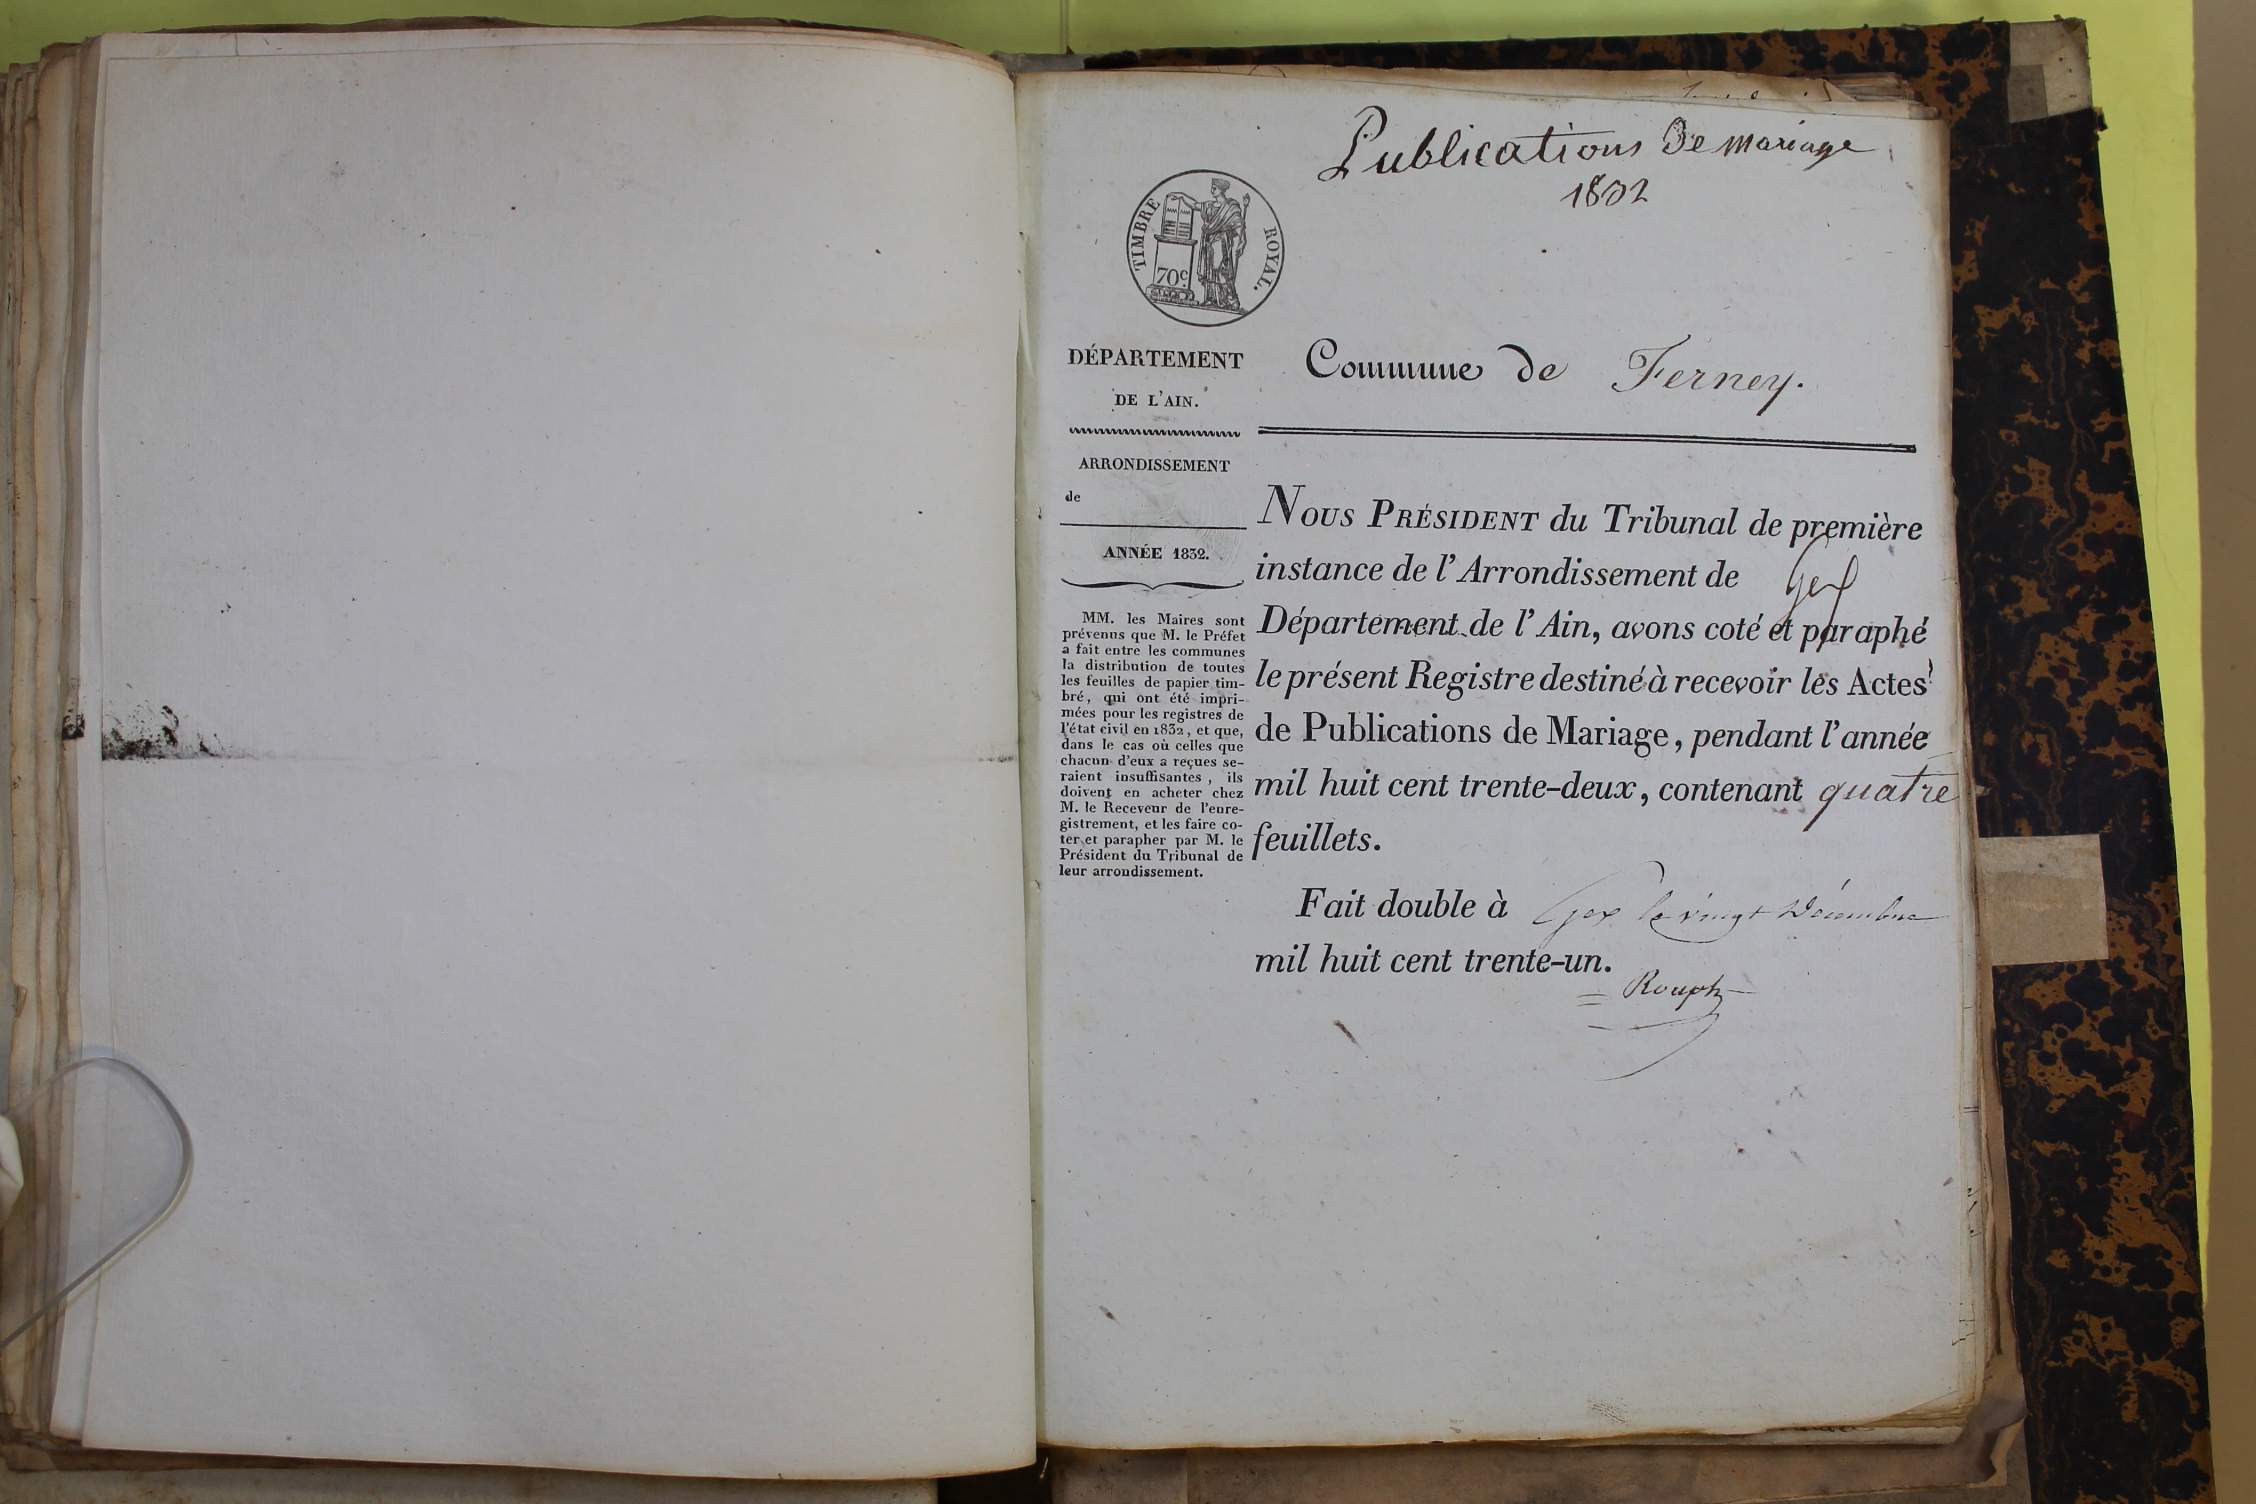 Publications De mariage
1832
TIMBRE ROYAL.
70c.
DÉPARTEMENT
DE L'AIN.
ARRONDISSEMENT
de
ANNÉE 1832.
MM. les Maires sont
prévenus que M. le Préfet
a fait entre les communes
la distribution de toutes
les feuilles de papier tim-
bré, qui ont été impri-
mées pour les registres de
l'état civil en 1832, et que,
dans le cas où celles que
chacun d'eux a reçues se-
raient insuffisantes, ils
doivent en acheter chez
M. le Receveur de l'enre-
gistrement, et les faire co-
ter et parapher par M. le
Président du Tribunal de
leur arrondissement.
Commune de Ferney.
NOUS PRÉSIDENT du Tribunal de première
instance de l'Arrondissement de Gex
Département de l'Ain, avons coté et paraphé
le présent Registre destiné à recevoir les Actes
de Publications de Mariage, pendant l'année
mil huit cent trente-deux, contenant quatre
feuillets.
Fait double à Gex le vingt Décembre
mil huit cent trente-un.
Rouph